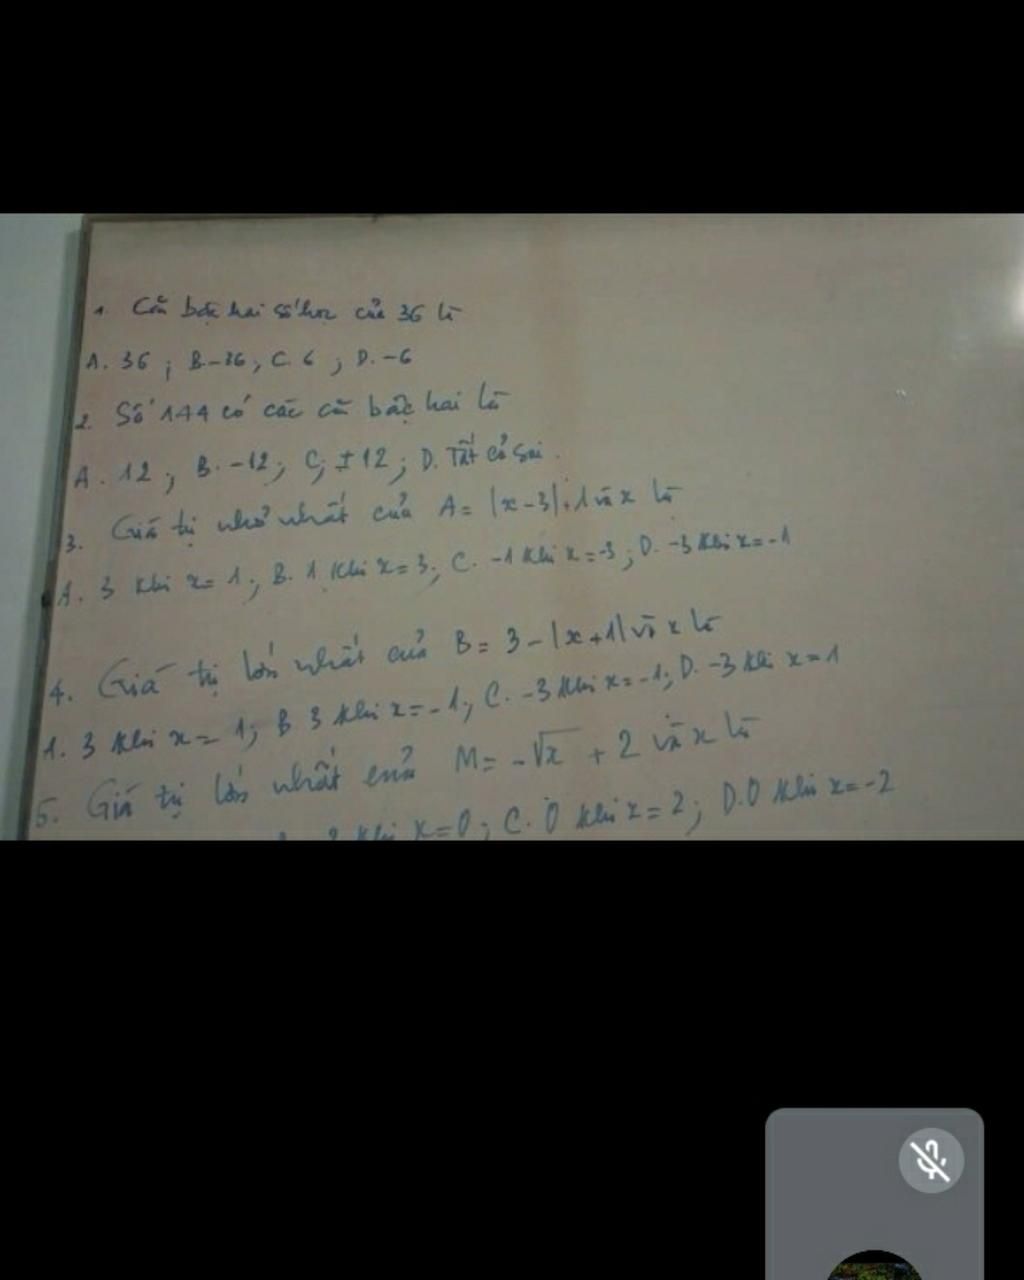 1. Căn bậc hai số học của 36 là
A. 36 ; B. -36 ; C. 6 ; D. -6
2. Số 144 có các căn bậc hai là
A. 12 ; B. -12 ; C; ±12 ; D. Tất cả sai.
3. Giá trị nhỏ nhất của A = |x - 3| + 1 và x là
A. 3 khi x = 1 ; B. 1 khi x = 3 ; C. -1 khi x = -3 ; D. -3 khi x = -1
4. Giá trị lớn nhất của B = 3 - |x + 1| và x là
A. 3 khi x = 1 ; B 3 khi x = -1 ; C. -3 khi x = -1 ; D. -3 khi x = 1
5. Giá trị lớn nhất của M = -√x + 2 và x là
khi x = 0 ; C. 0 khi x = 2 ; D. 0 khi x = -2